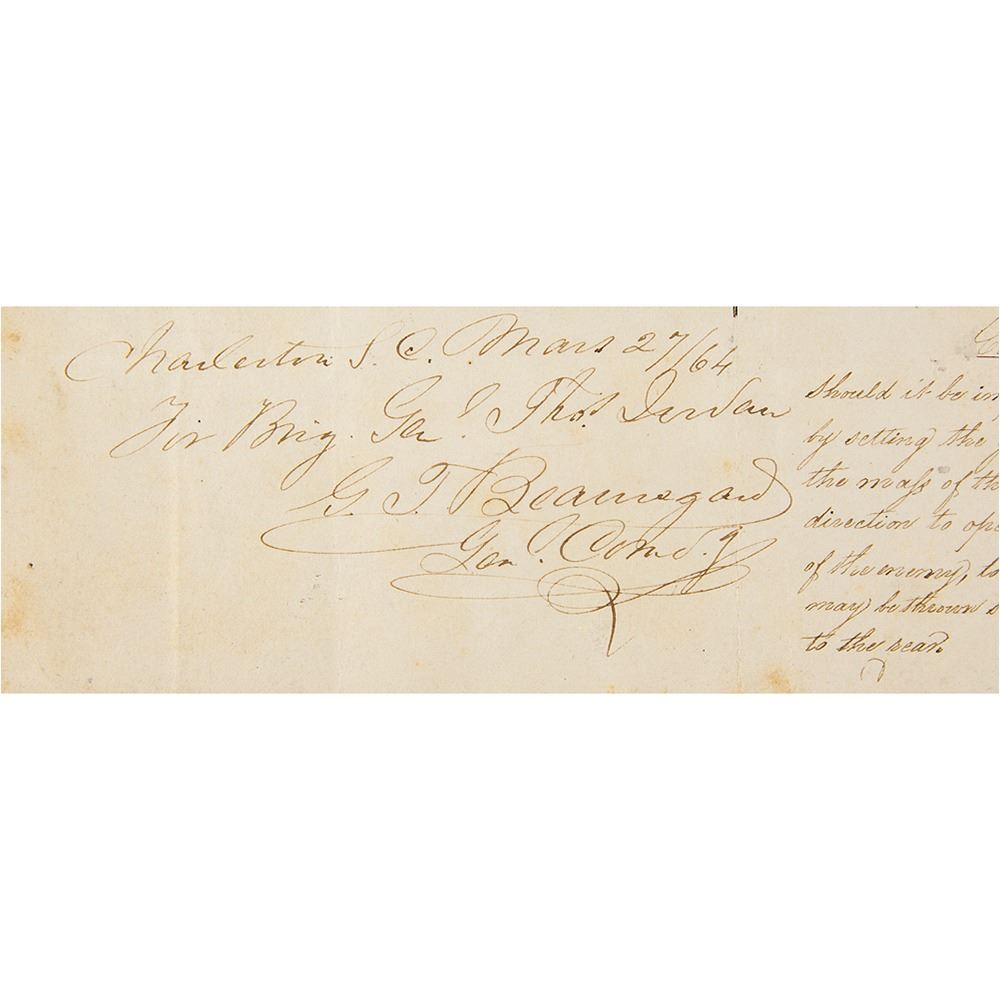 Charleston S. C. Mars 27/64
For Brig. Genl. Thos. Jordan
G. T. Beauregard
Genl. Comd.g
should it be in
by setting the
the mass of the
direction to ope
of the enemy, to
may be thrown s
to the rear